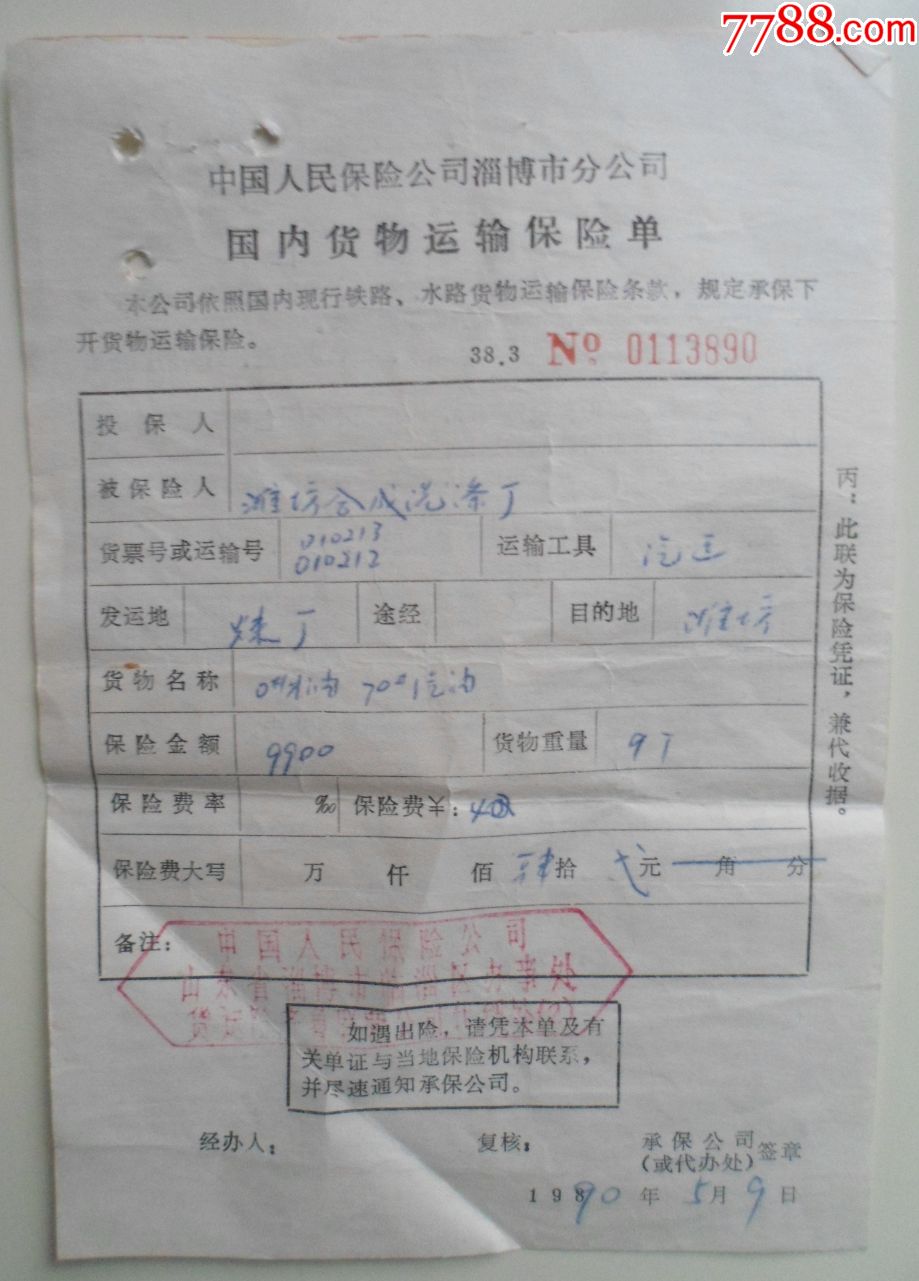 7788.com
中国人民保险公司淄博市分公司
国内货物运输保险单
本公司依照国内现行铁路、水路货物运输保险条款，规定承保下
开货物运输保险。
38.3 № 0113890
投保人
被保险人 潍坊合成洗涤厂
货票号或运输号 010213 010212 运输工具 汽
发运地 炼厂 途经 目的地 潍坊
货物名称 0#柴油 70#汽油
保险金额 9900 货物重量 9T
保险费率 ‰ 保险费￥：42
保险费大写 万 仟 佰 肆拾 弍元 角 分
备注：
中国人民保险公司
山东省淄博市临淄区办事处
货运
如遇出险，请凭本单及有
关单证与当地保险机构联系，
并尽速通知承保公司。
经办人： 复核： 承保公司
(或代办处) 签章
1990 年 5月 9日
丙：此联为保险凭证，兼代收据。